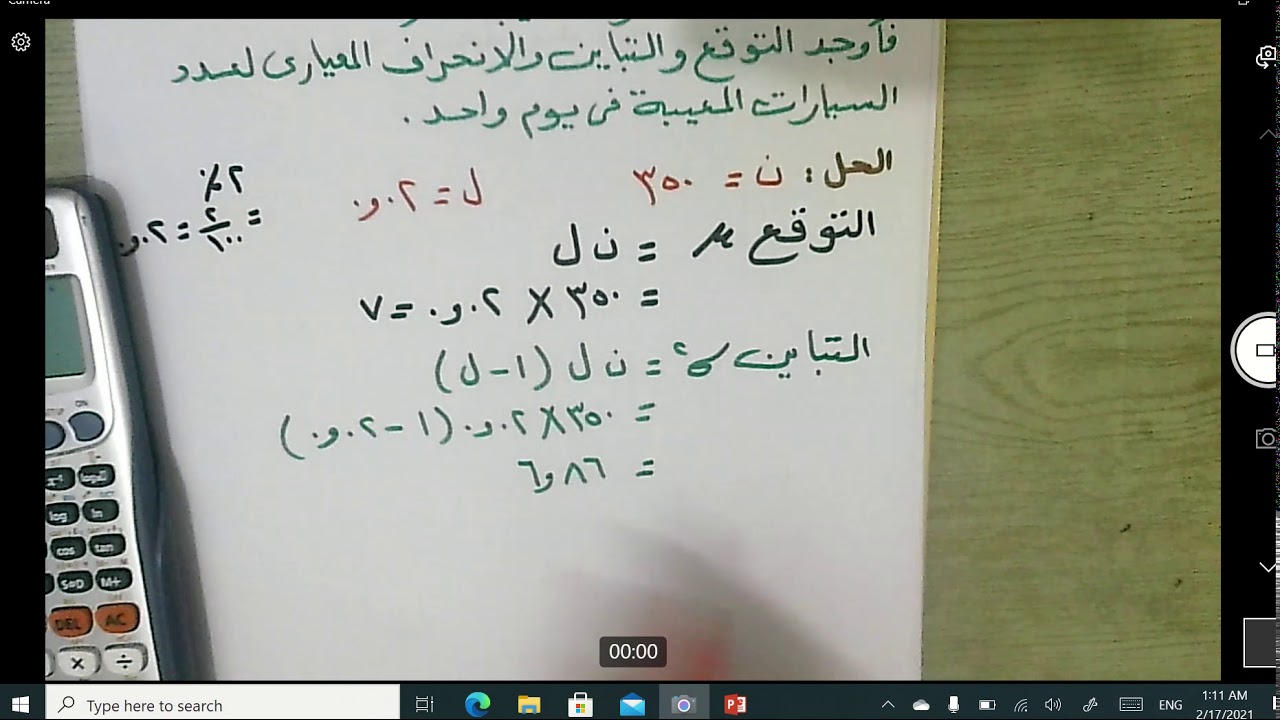 Camera
فأوجد التوقع والتباين والانحراف المعيارى لعدد
السيارات المعيبة فى يوم واحد .
الحل : ن = ٣٥٠ ل = ٠٢و٠
٢٪
= ٢/١٠٠ = ٠٢و٠
التوقع μ = ن ل
= ٣٥٠ × ٠٢و٠ = ٧
التباين σ² = ن ل (١ - ل)
= ٣٥٠ × ٠٢و٠ (١ - ٠٢و٠)
= ٨٦و٦
ON
log
ln
cos
tan
S⇔D
M+
DEL
AC
×
÷
00:00
Type here to search
ENG
1:11 AM
2/17/2021